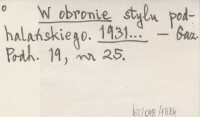 W obronie stylu pod-
halańskiego. 1931... — Gaz.
Podh. 19, nr 25.